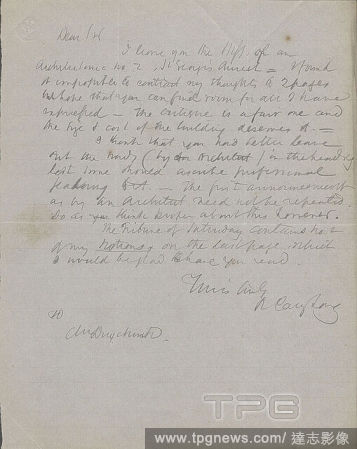 Dear Sir
I leave you the MSS. of an
Architectonic No. 2, St George's Church = I found
it impossible to contract my thoughts to 2 pages
I hope that you can find room for all I have
expressed — the critique is a fair one and
the size & cost of the building deserves it. =
I think that you had better leave
out the words (by an Architect) in the heading
lest some should assume professional
feeling &c. — The first announcement
as by an Architect need not be repeated.
Do as you think proper about this however.
The Tribune of Saturday contains
of my on the last page, which
I would be glad to have you read.
Yours truly
R Cary Long
To
Mr Duyckinck.
TPG
www.tpgnews.com/ 達志影像